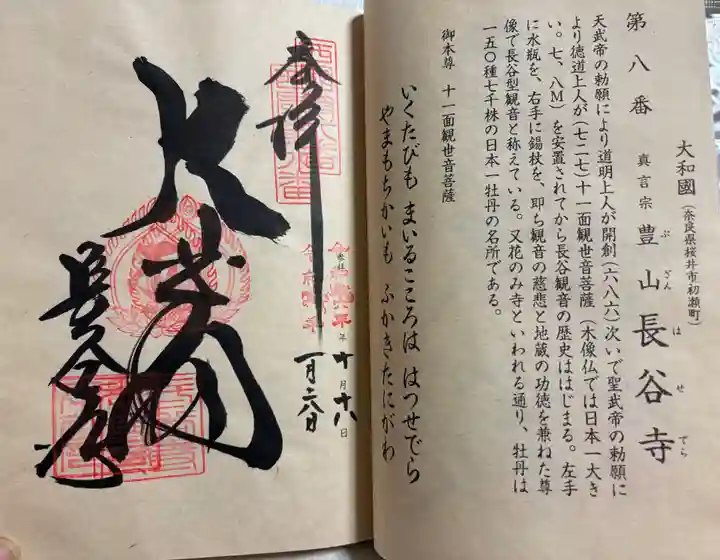 第八番
大和國(奈良県桜井市初瀬町)
真言宗 豊山長谷寺
ぶざん はせでら
天武帝の勅願により道明上人が開創(六八六)次いで聖武帝の勅願に
より徳道上人が(七二七)十一面観世音菩薩(木像仏では日本一大き
い。七、八M)を安置されてから長谷観音の歴史ははじまる。左手
に水瓶を、右手に錫杖を、即ち観音の慈悲と地蔵の功徳を兼ねた尊
像で長谷型観音と称えている。又花のみ寺といわれる通り、牡丹は
一五〇種七千株の日本一牡丹の名所である。
御本尊 十一面観世音菩薩
いくたびも まいるこころは はつせでら
やまもちかいも ふかきたにがわ
奉拝
年十月十八日
長谷寺